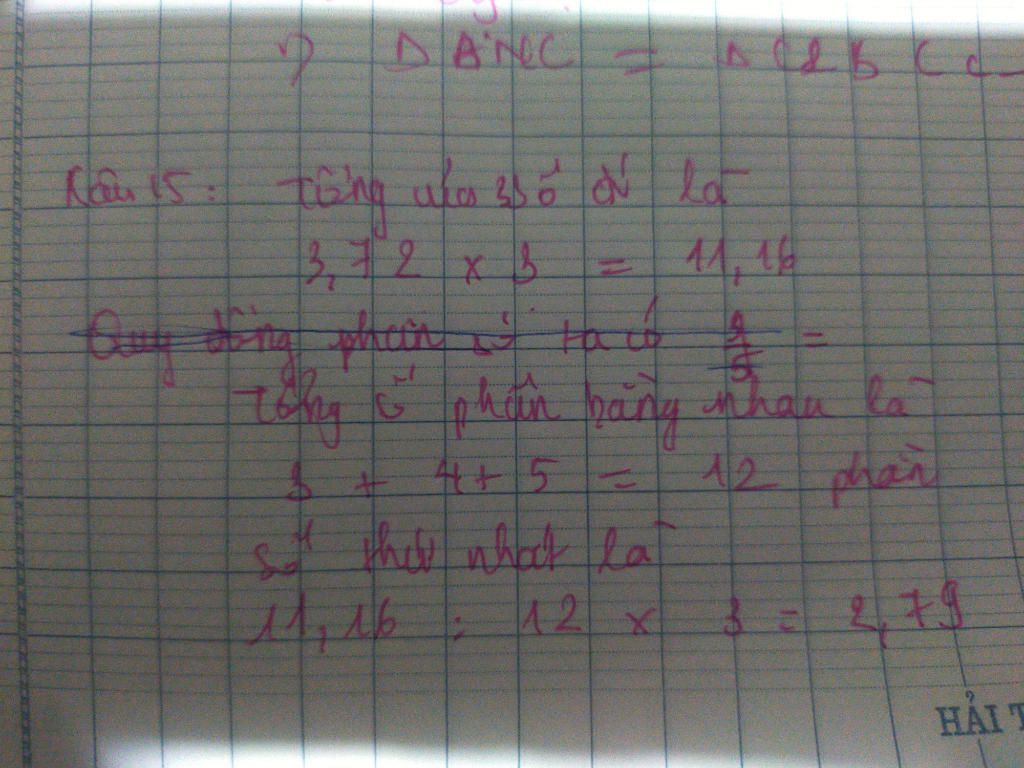 Câu 15: Tổng của 3 số đó là
3,72 x 3 = 11,16
Quy đồng phân số ta có =
Tổng số phần bằng nhau là
3 + 4 + 5 = 12 phần
Số thứ nhất là
11,16 : 12 x 3 = 2,79
HẢI T